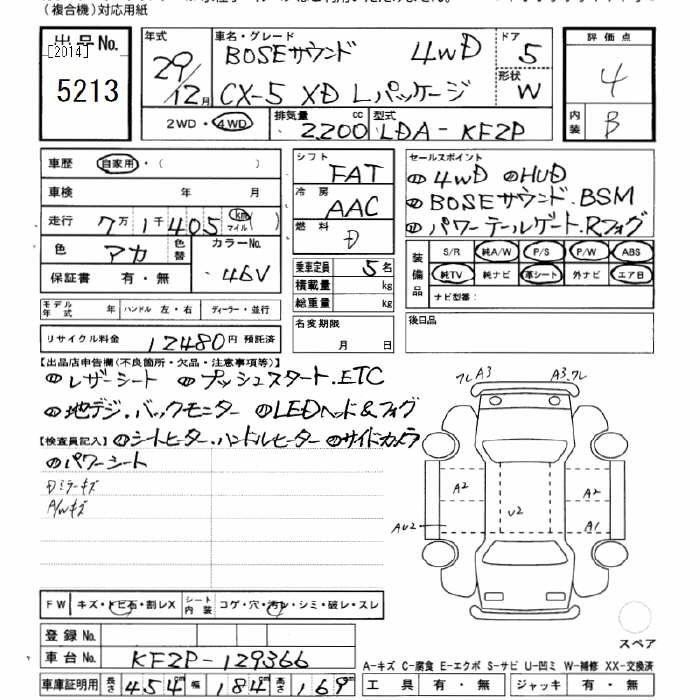 (複合機)対応用紙
出品No. [2014] 5213
年式 29/12月
車名・グレード BOSEサウンド 4WD
CX-5 XD Lパッケージ
ドア 5
形状 W
評価点 4
内装 B
2WD・4WD 排気量 2200 cc 型式 LDA-KF2P
車歴 自家用・( )
車検 年 月
走行 7万1千405 km マイル ( )
色 アカ 色替 カラーNo. 46V
保証書 有・無
シフト FAT
冷房 AAC
燃料 D
乗車定員 5名
積載量 kg
総重量 kg
セールスポイント
4WD HUD
BOSEサウンド.BSM
パワーテールゲート.Rフォグ
装備品 S/R 純A/W P/S P/W ABS
純TV 純ナビ 革シート 外ナビ エア日
ナビ型番:
モデル年式 年 ハンドル 左・右 ディーラー・並行
リサイクル料金 12480円 預託済
名変期限 月 日
後日品
【出品店申告欄(不良箇所・欠品・注意事項等)】
レザーシート プッシュスタート.ETC
地デジ.バックモニター LEDヘッド&フォグ
【検査員記入】シートヒーター.ハンドルヒーター サイドカメラ
パワーシート
Dミラーキズ
A/Wキズ
フレA3 A3.フレ
A2 A2
U2
AU2 A1
FW キズ・トビ石・割レX シート内装 コゲ・穴・汚レ・シミ・破レ・スレ
スペア
登録No.
車台No. KF2P-129366
A-キズ C-腐食 E-エクボ S-サビ U-凹ミ W-補修 XX-交換済
車庫証明用 長さ 454 幅 184 高さ 169
工具 有・無 ジャッキ 有・無